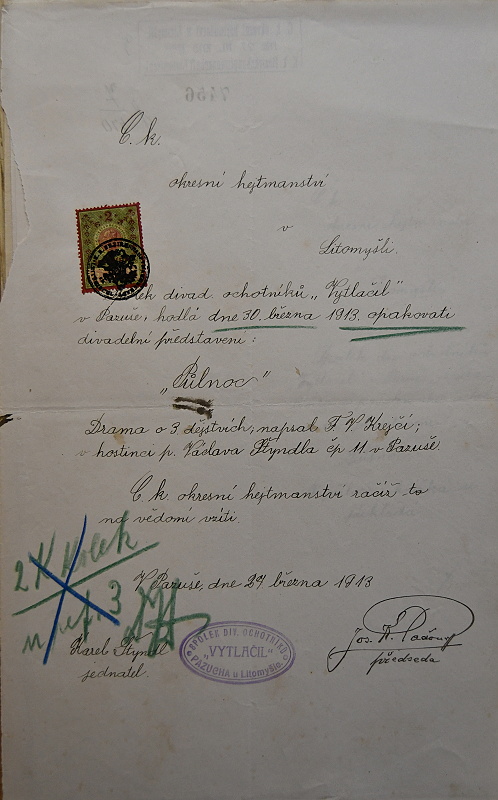 C. k.
okresní hejtmanství
v
Litomyšli.
2
Spolek divad. ochotníků „Vytlačil"
v Pazuše, hodlá dne 30. března 1913. opakovati
divadelní představení:
„Půlnoc"
Drama o 3 dějstvích; napsal F. V. Krejčí;
v hostinci p. Václava Štyndla čp 11. v Pazuše.
C. k. okresní hejtmanství račiž to
na vědomí vzíti.
2 K kolek
3
V Pazuše, dne 27 března 1913
Karel Štyndl
jednatel.
SPOLEK DIV. OCHOTNÍKŮ
„VYTLAČIL"
PAZUCHA u Litomyšle
Jos. K.
předseda
7456